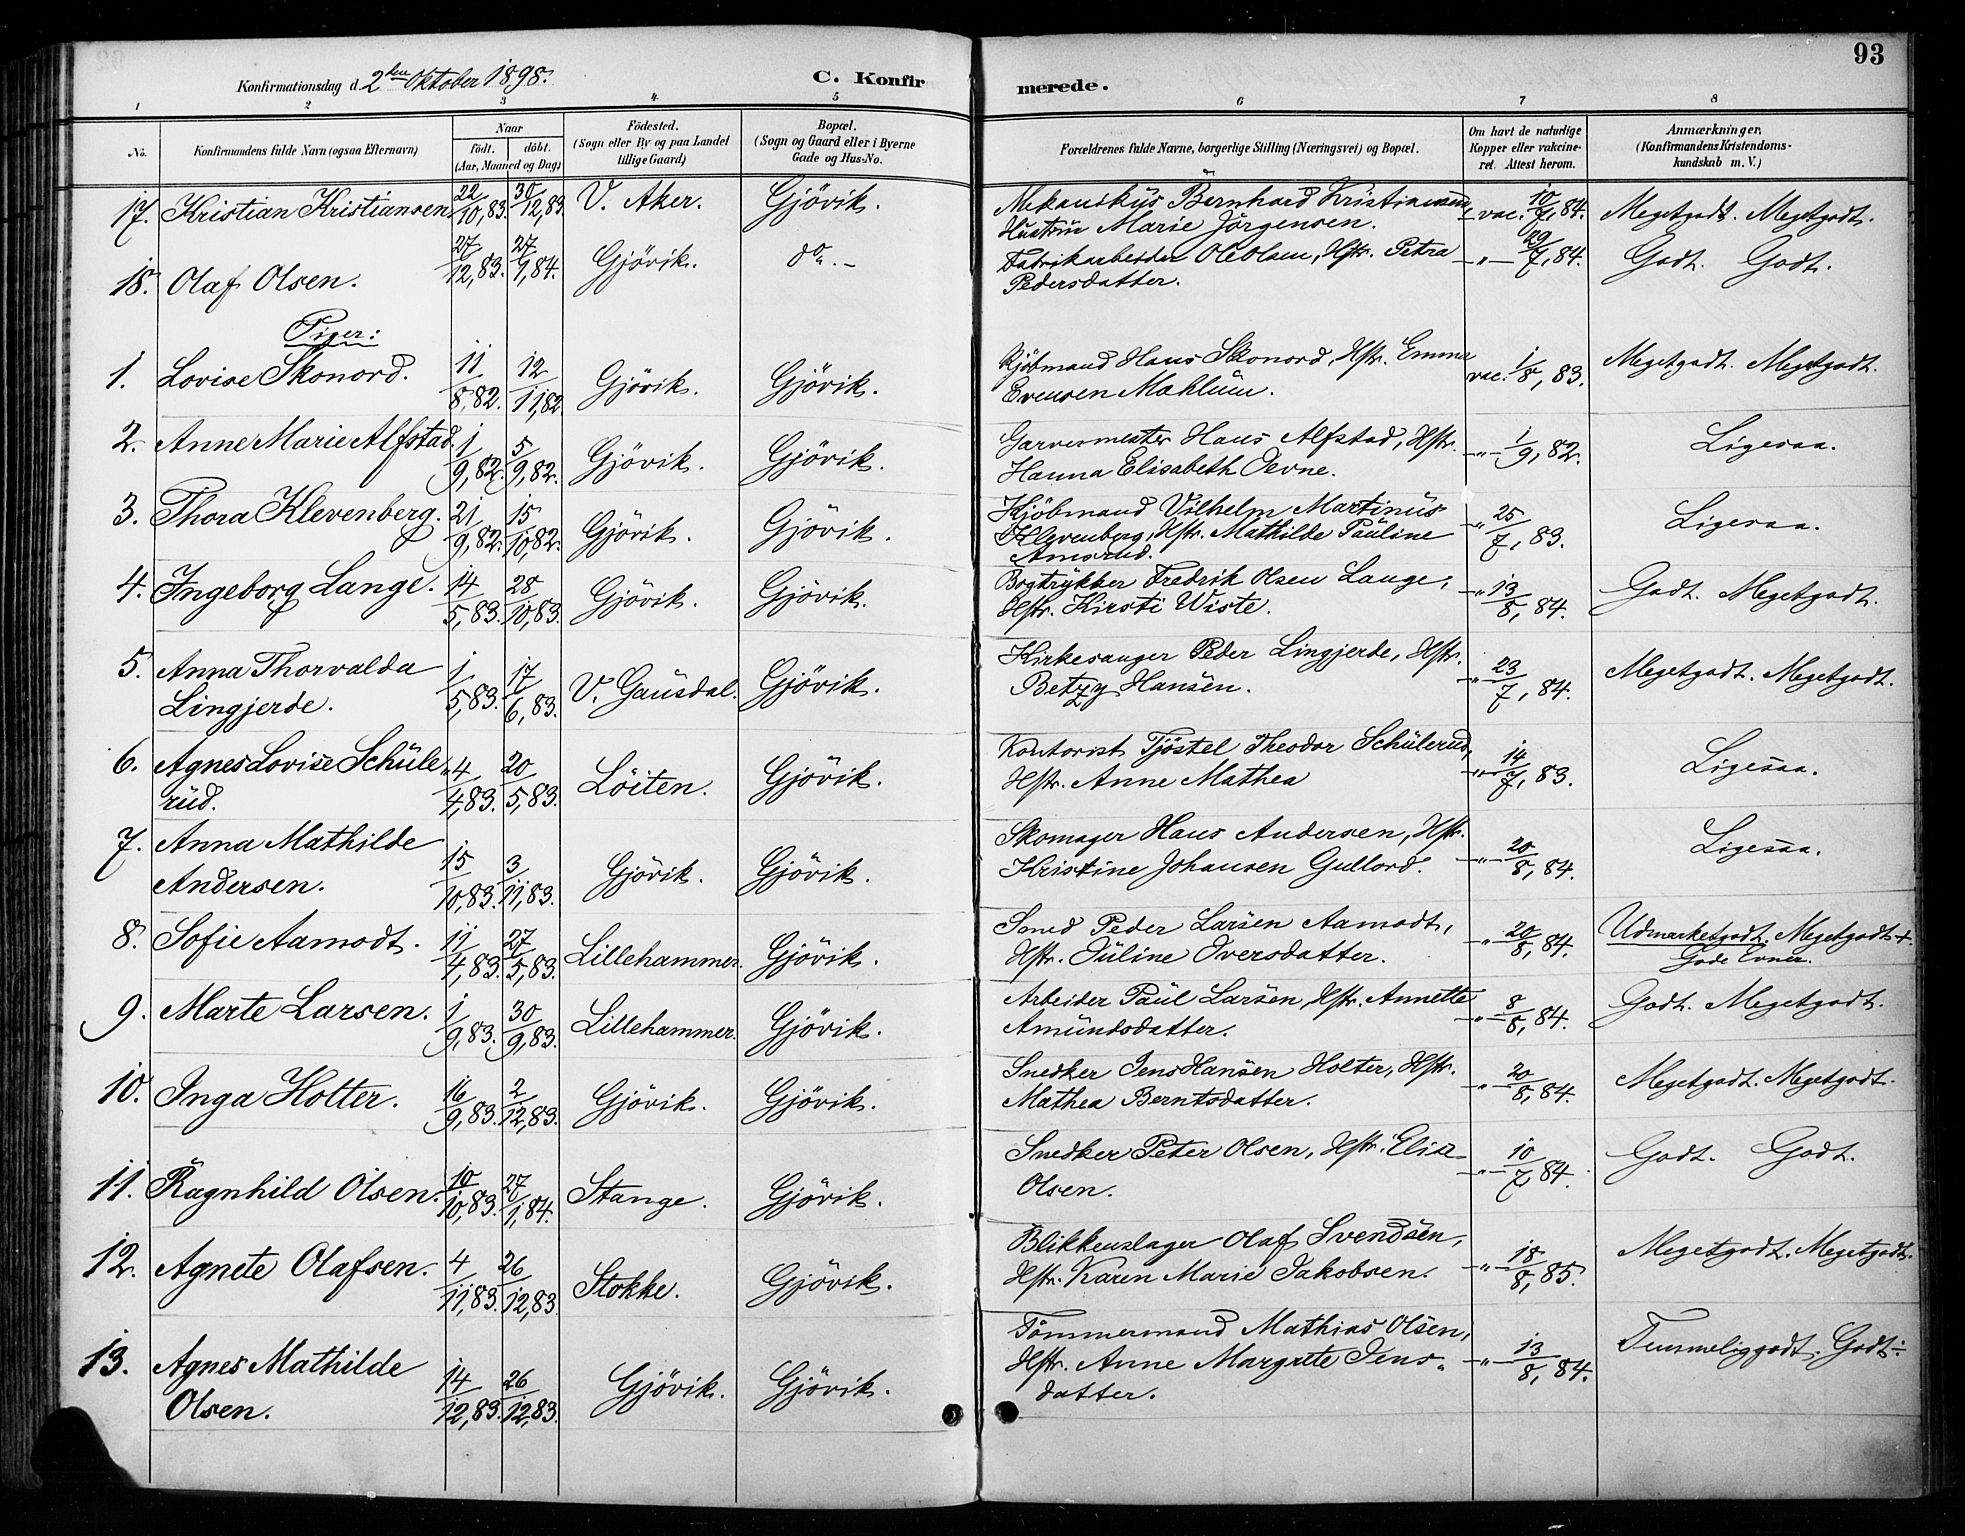 93
Konfirmationsdag d. 2den Oktober 1898.
C. Konfirmerede.
1 2 3 4 5 6 7 8
No.
Konfirmandens fulde Navn (ogsaa Efternavn)
Naar
födt. döbt.
(Aar, Maaned og Dag)
Födested.
(Sogn eller By og paa Landet
tillige Gaard)
Bopæl.
(Sogn og Gaard eller i Byerne
Gade og Hus-No.
Forældrenes fulde Navne, borgerlige Stilling (Næringsvei) og Bopæl.
Om havt de naturlige
Kopper eller vakcine-
ret. Attest herom.
Anmærkninger,
(Konfirmandens Kristendoms-
kundskab m. V.)
17. Kristian Kristiansen. 22/10,83. 30/12,83. V. Aker. Gjövik. Mekanikus Bernhard Kristiansen, vac. 10/7,84. Megetgodt. Megetgodt.
Hustru Marie Jörgensen.
18. Olaf Olsen. 27/12,83. 27/1,84. Gjövik. do.- Fabrikarbeider Ole Olsen, Hstr. Petra -"- 29/7,84. Godt. Godt.
Pedersdatter.
Piger:
1. Lovise Skonord. 11/8,82. 12/11,82. Gjövik. Gjövik. Kjöbmand Hans Skonord, Hstr. Emma vac. 1/8,83. Megetgodt. Megetgodt.
Evensen Mæhlum.
2. Anne Marie Alfstad. 1/9,82. 5/9,82. Gjövik. Gjövik. Garvermester Hans Alfstad, Hstr. -"- 1/9,82. Ligesaa.
Hanna Elisabeth Tevne.
3. Thora Klevenberg. 21/9,82. 15/10,82. Gjövik. Gjövik. Kjöbmand Vilhelm Martinus -"- 25/7,83. Ligesaa.
Klevenberg, Hstr. Mathilde Pauline
Amsrud.
4. Ingeborg Lange. 14/5,83. 28/10,83. Gjövik. Gjövik. Bogtrykker Fredrik Olsen Lange, -"- 13/8,84. Godt. Megetgodt.
Hstr. Kirsti Wiste.
5. Anna Thorvalda 1/5,83. 17/6,83. V. Gausdal. Gjövik. Kirkesanger Peder Lingjerde, Hstr. -"- 23/7,84. Megetgodt. Megetgodt.
Lingjerde. Betzy Hansen.
6. Agnes Lovise Schule- 4/4,83. 20/5,83. Löiten. Gjövik. Kontorist Tjöstel Theodor Schulerud, -"- 14/7,83. Ligesaa.
rud. Hstr. Anne Mathea
7. Anna Mathilde 15/10,83. 3/11,83. Gjövik. Gjövik. Skomager Hans Andersen, Hstr. -"- 20/8,84. Ligesaa.
Andersen. Kristine Johansen Gullord.
8. Sofie Aamodt. 11/4,83. 27/5,83. Lillehammer. Gjövik. Smed Peder Larsen Aamodt, -"- 20/8,84. Udmærketgodt. Megetgodt+
Hstr. Juline Iversdatter. Gode Evner.
9. Marte Larsen. 1/9,83. 30/9,83. Lillehammer. Gjövik. Arbeider Paul Larsen, Hstr. Annette -"- 8/8,84. Godt. Megetgodt.
Amundsdatter.
10. Inga Holter. 16/9,83. 2/12,83. Gjövik. Gjövik. Snedker Jens Hansen Holter, Hstr. -"- 20/8,84. Megetgodt. Megetgodt.
Mathea Berntsdatter.
11. Ragnhild Olsen. 10/10,83. 27/1,84. Stange. Gjövik. Snedker Peter Olsen, Hstr. Elise -"- 10/7,84. Godt. Godt.
Olsen.
12. Agnete Olafsen. 4/11,83. 26/12,83. Stokke. Gjövik. Blikkenslager Olaf Svendsen, -"- 18/8,85. Megetgodt. Megetgodt.
Hstr. Karen Marie Jakobsen.
13. Agnes Mathilde 14/12,83. 26/12,83. Gjövik. Gjövik. Tömmermand Mathias Olsen, -"- 13/8,84. Temmeliggodt. Godt÷
Olsen. Hstr. Anne Margrete Jens-
datter.